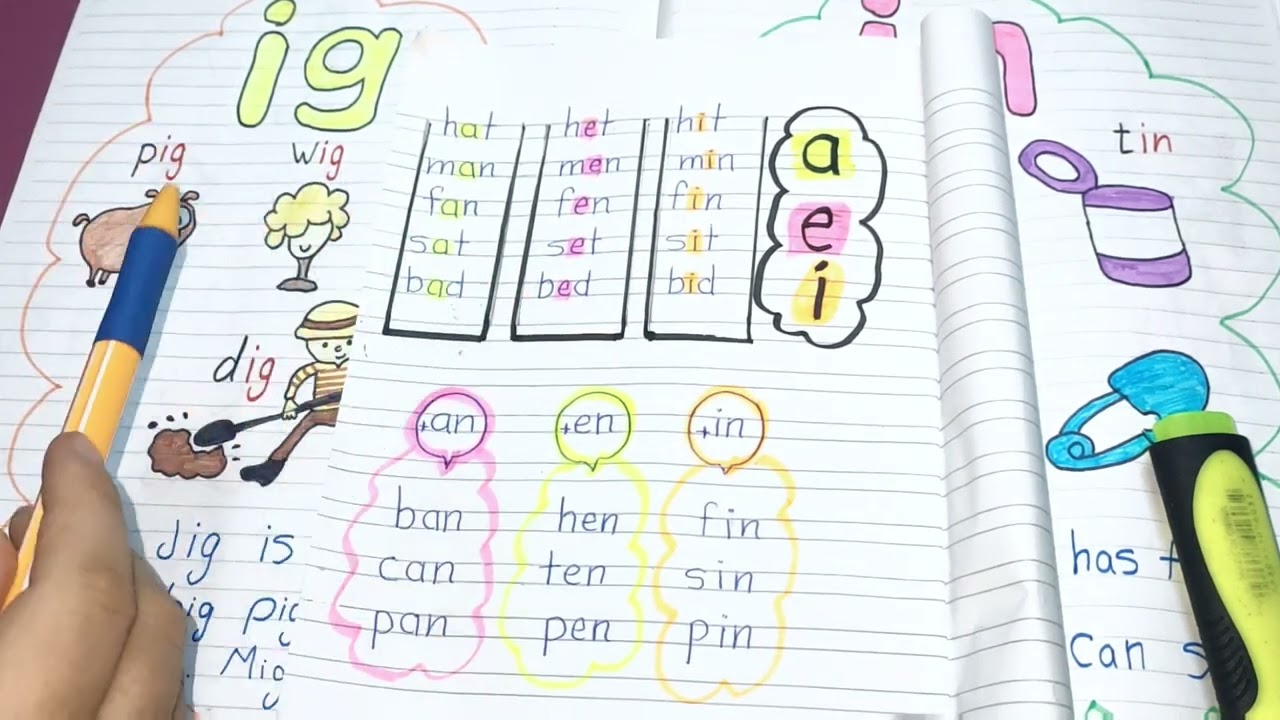 ig
pig
wig
dig
dig is
big pig
Mig
hat het hit
man men min
fan fen fin
sat set sit
bad bed bid
a
e
i
+an +en +in
ban hen fin
can ten sin
pan pen pin
in
tin
has
can